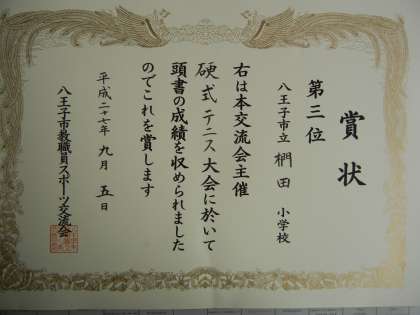 賞状
第三位
八王子市立 椚田 小学校
右は本交流会主催
硬式テニス大会に於いて
頭書の成績を収められました
のでこれを賞します
平成二十七年 九月 五日
八王子市教職員スポーツ交流会